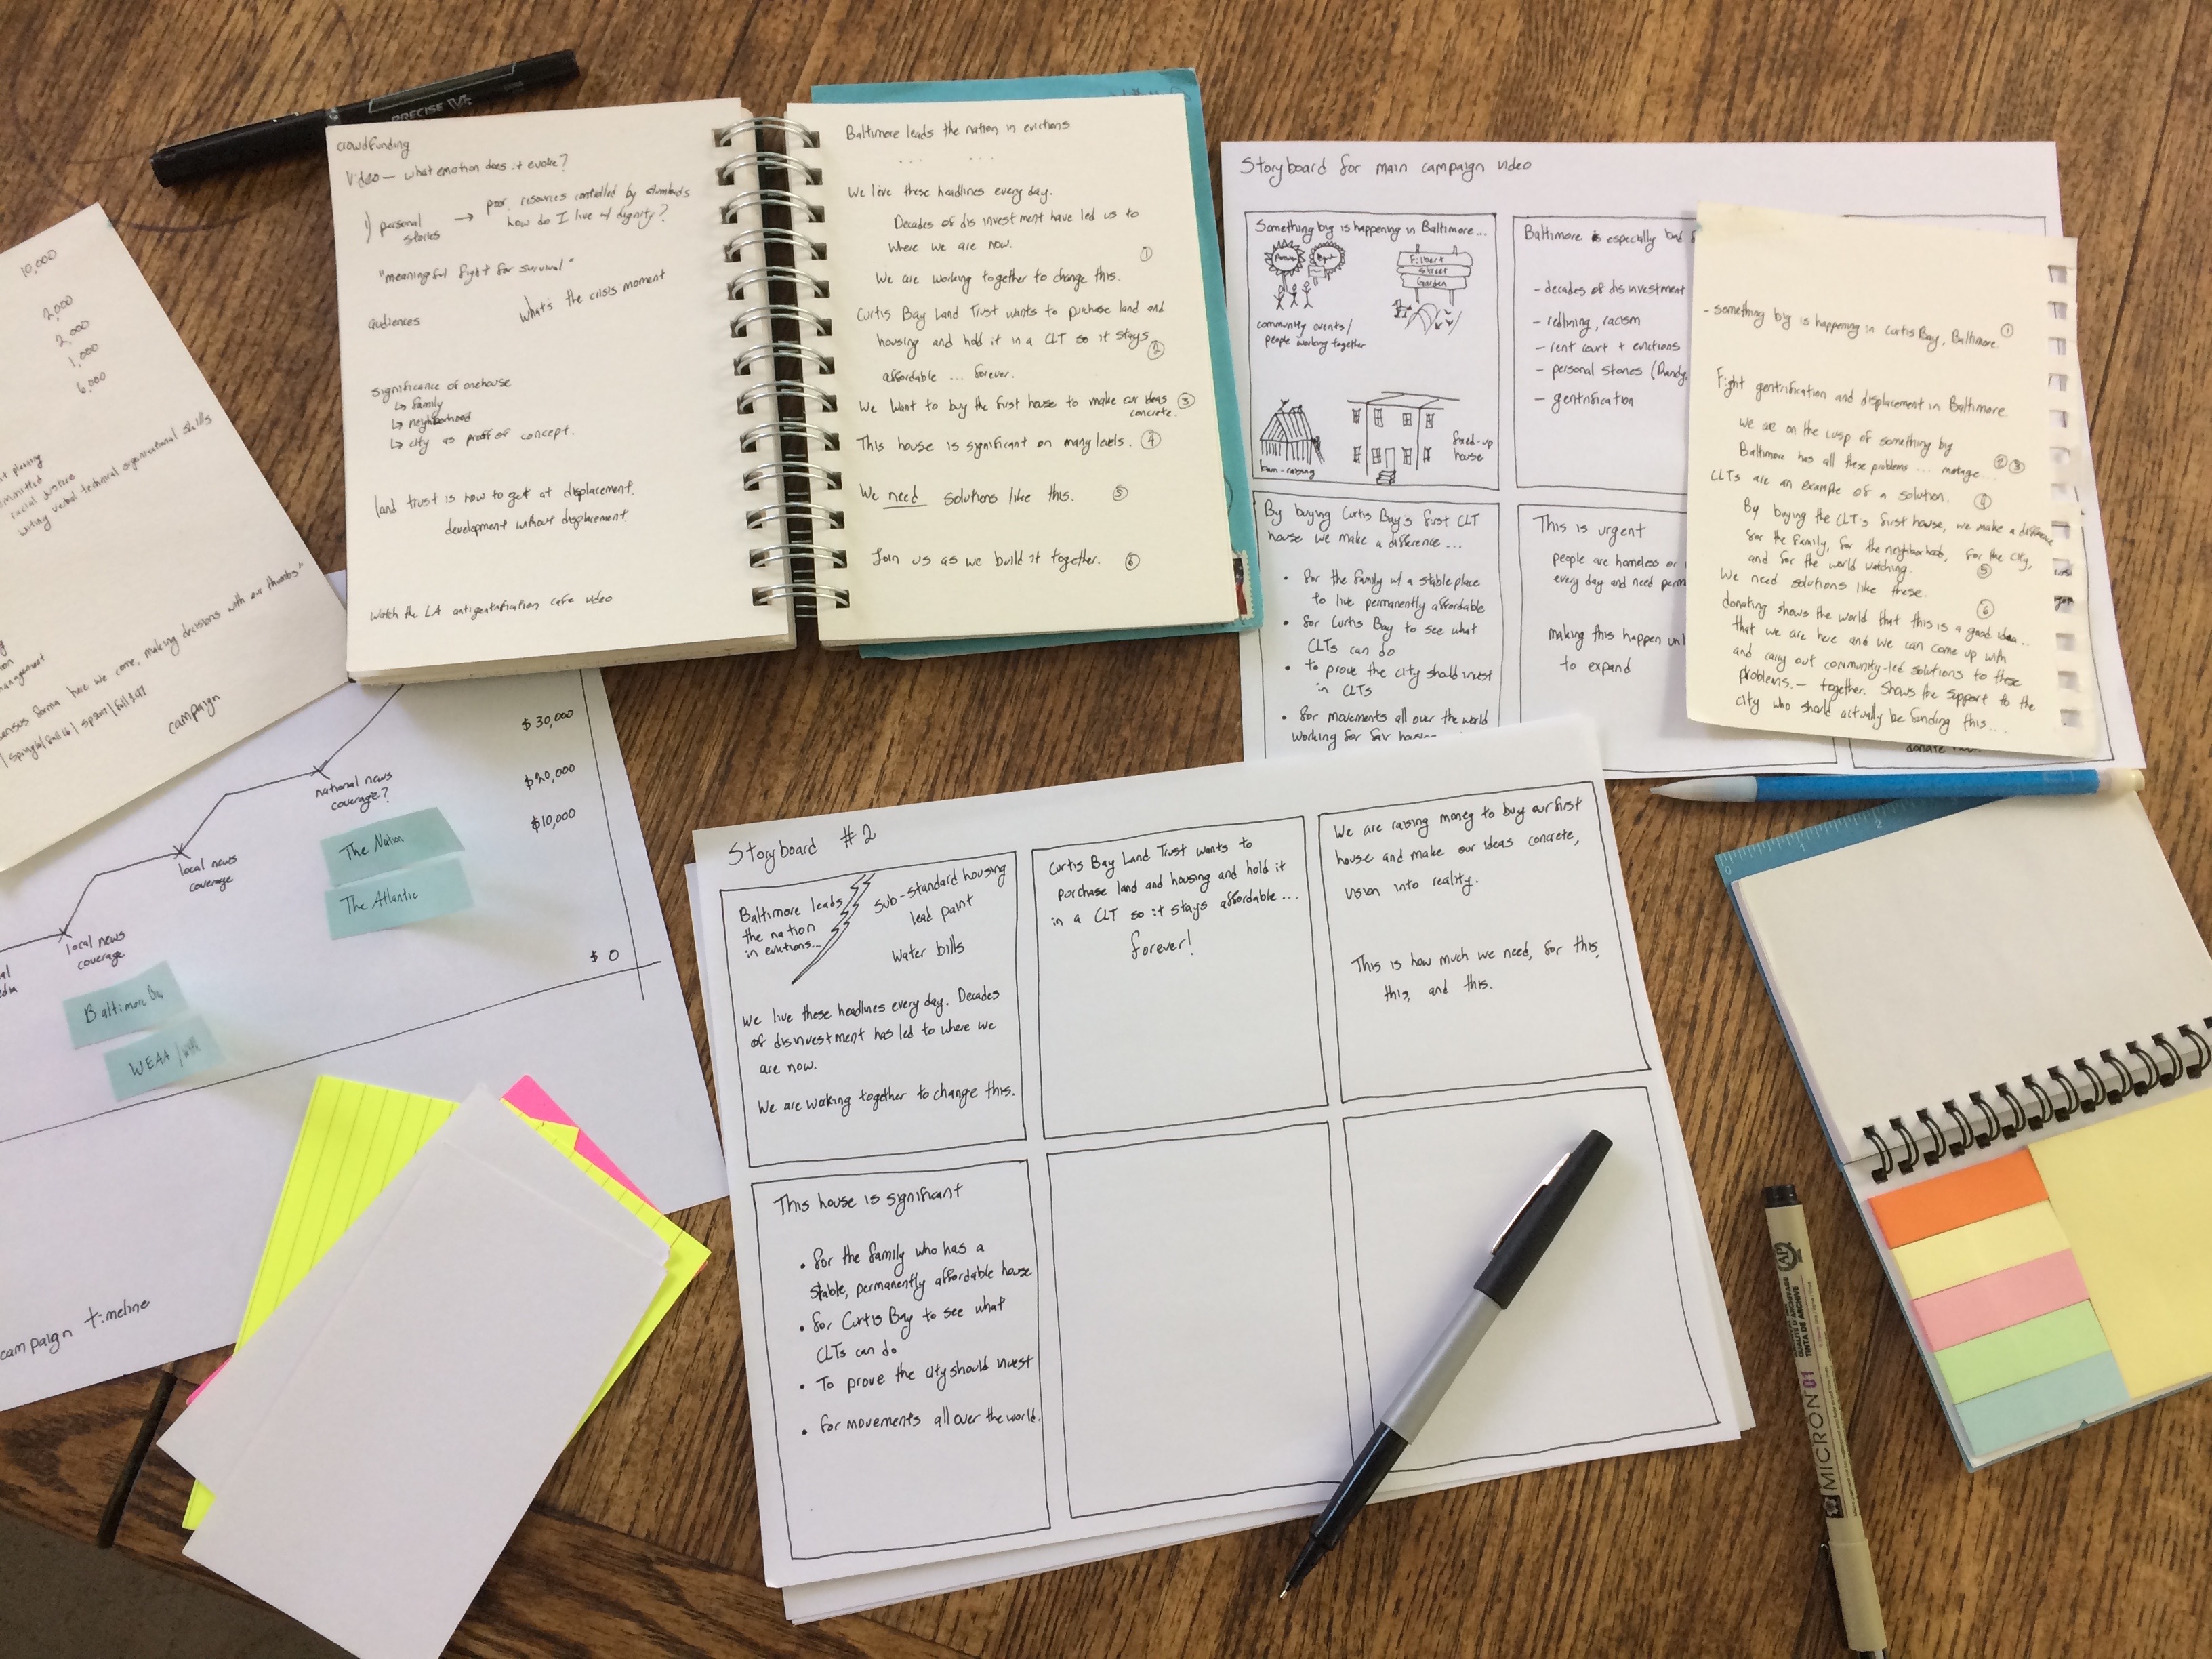 PRECISE V5
crowdfunding
Video — what emotion does it evoke?
1) personal stories → poor, resources controlled by
how do I live w/ dignity?
"meaningful fight for survival"
what's the crisis moment
audiences
significance of one house
↳ family
↳ neighborhood
↳ city as proof of concept.
land trust is how to get at displacement.
development without displacement.
Watch the LA antigentrification cafe video
Baltimore leads the nation in evictions
... ...
We live these headlines every day.
Decades of disinvestment have led us to
where we are now.
①
We are working together to change this.
Curtis Bay Land Trust wants to purchase land and
housing and hold it in a CLT so it stays ②
affordable ... forever.
We want to buy the first house to make our ideas ③
concrete.
This house is significant on many levels. ④
We need solutions like this. ⑤
Join us as we build it together. ⑥
Storyboard for main campaign video
Something big is happening in Baltimore...
Filbert
Street
Garden
community events/
people working together
barn-raising
fixed-up
house
Baltimore is especially bad
- decades of disinvestment
- redlining, racism
- rent court + evictions
- personal stories (Randy,
- gentrification
By buying Curtis Bay's first CLT
house we make a difference...
• for the family w/ a stable place
to live permanently affordable
• for Curtis Bay to see what
CLTs can do
• to prove the city should invest
in CLTs
• for movements all over the world
working for fair
This is urgent
people are homeless or
every day and need
making this happen
to expand
donate
- something big is happening in Curtis Bay, Baltimore ①
Fight gentrification and displacement in Baltimore.
we are on the cusp of something big
Baltimore has all these problems ... montage... ② ③
CLTs are an example of a solution. ④
By buying the CLT's first house, we make a difference
for the family, for the neighborhood, for the city,
and for the world watching. ⑤
We need solutions like these.
⑥
donating shows the world that this is a good idea...
that we are here and we can come up with
and carry out community-led solutions to these
problems — together. Shows the support to the
city who should actually be funding this....
10,000
2,000
2,000
1,000
6,000
planning
committed
racial justice
writing verbal technical organizational skills
here we come, making decisions with our thumbs"
campaign
$30,000
$20,000
$10,000
$0
national news
coverage?
The Nation
The Atlantic
local news
coverage
local news
coverage
Baltimore
WEAA /
campaign timeline
Storyboard #2
Baltimore leads
the nation
in evictions...
sub-standard housing
lead paint
water bills
We live these headlines every day. Decades
of disinvestment has led to where we
are now.
We are working together to change this.
Curtis Bay Land Trust wants to
purchase land and housing and hold it
in a CLT so it stays affordable...
forever!
We are raising money to buy our first
house and make our ideas concrete,
vision into reality.
This is how much we need, for this,
this, and this.
This house is significant
• for the family who has a
stable, permanently affordable house
• for Curtis Bay to see what
CLTs can do
• To prove the city should invest
• for movements all over the world.
0 1 2
AP
MICRON 01